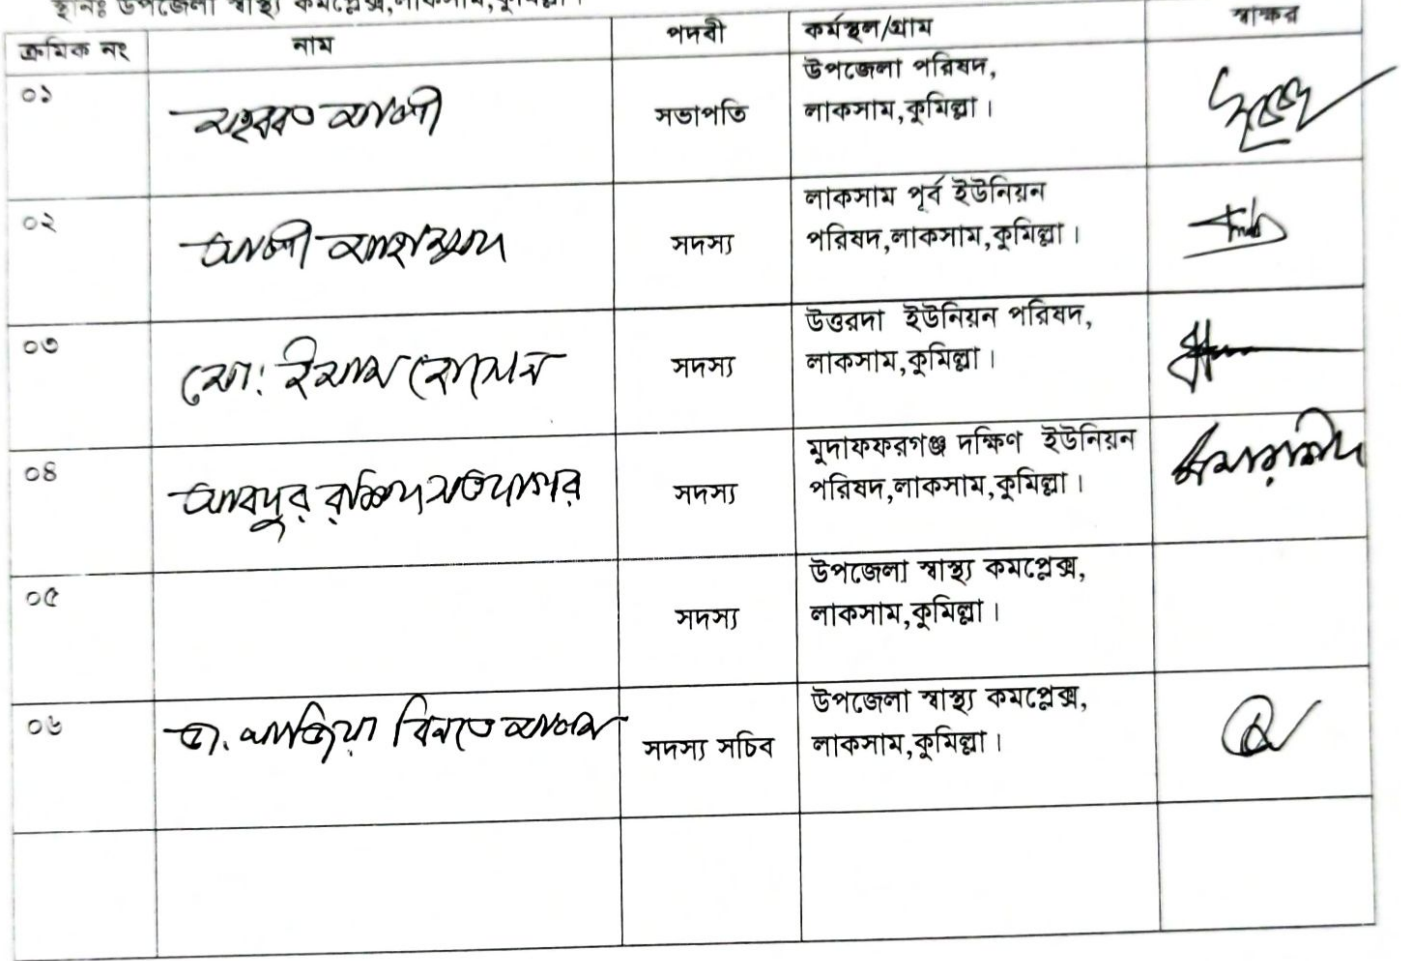 স্থানঃ উপজেলা স্বাস্থ্য কমপ্লেক্স,লাকসাম,কুমিল্লা।
ক্রমিক নং নাম পদবী কর্মস্থল/গ্রাম স্বাক্ষর
০১ আলী সভাপতি উপজেলা পরিষদ,
লাকসাম,কুমিল্লা।
০২ আলী আহাম্মদ সদস্য লাকসাম পূর্ব ইউনিয়ন
পরিষদ,লাকসাম,কুমিল্লা।
০৩ মো: ইমাম হোসেন সদস্য উত্তরদা ইউনিয়ন পরিষদ,
লাকসাম,কুমিল্লা।
০৪ আবদুর রশিদ সওদাগর সদস্য মুদাফফরগঞ্জ দক্ষিণ ইউনিয়ন
পরিষদ,লাকসাম,কুমিল্লা।
০৫ সদস্য উপজেলা স্বাস্থ্য কমপ্লেক্স,
লাকসাম,কুমিল্লা।
০৬ ডা. নাজিয়া বিনতে আলম সদস্য সচিব উপজেলা স্বাস্থ্য কমপ্লেক্স,
লাকসাম,কুমিল্লা।